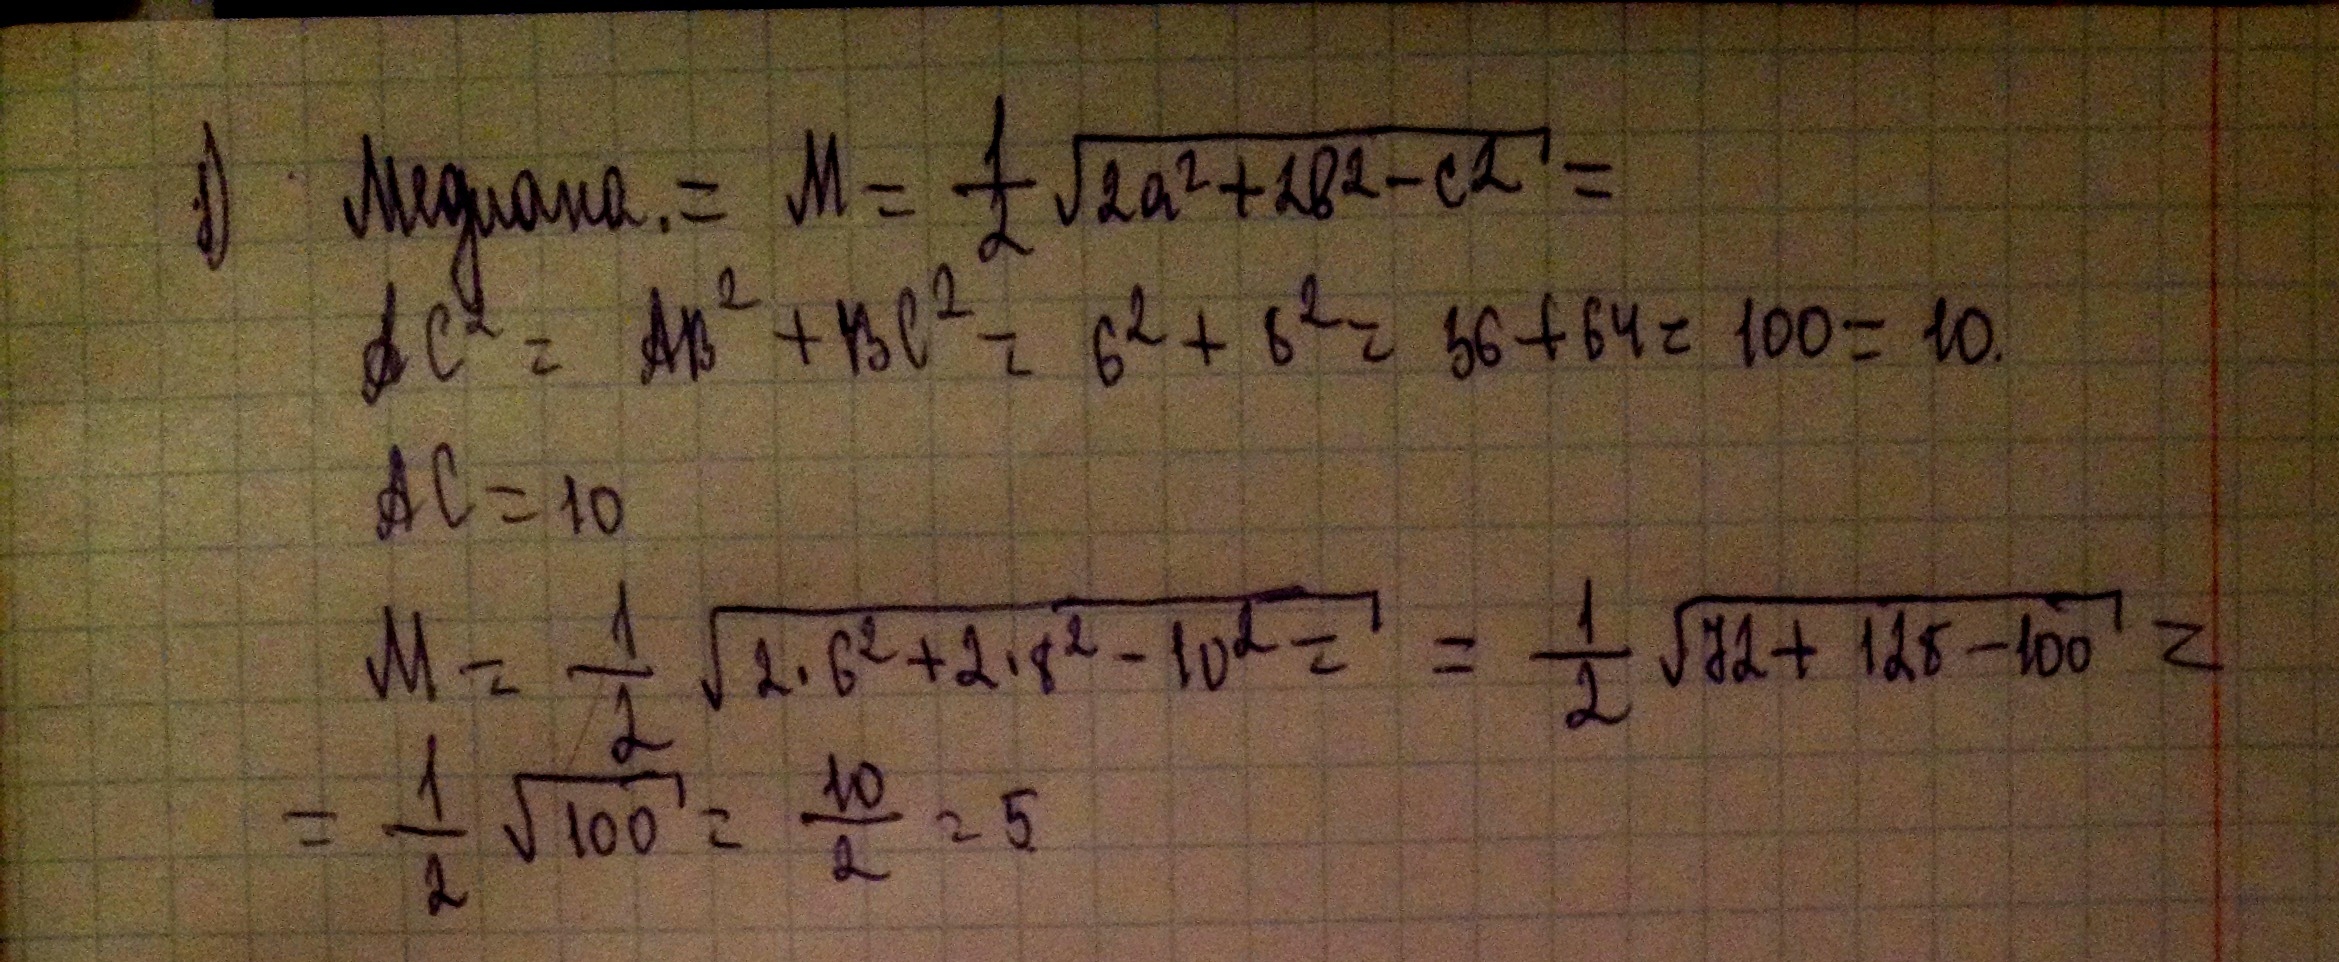 1) Медиана. = M = 1/2 √(2a² + 2в2 - c2) =
AC² = AB² + BC² = 6² + 8² = 36 + 64 = 100 = 10.
AC = 10
M = 1/2 √(2·6² + 2·8² - 10² =) = 1/2 √(72 + 128 - 100) =
= 1/2 √100 = 10/2 = 5